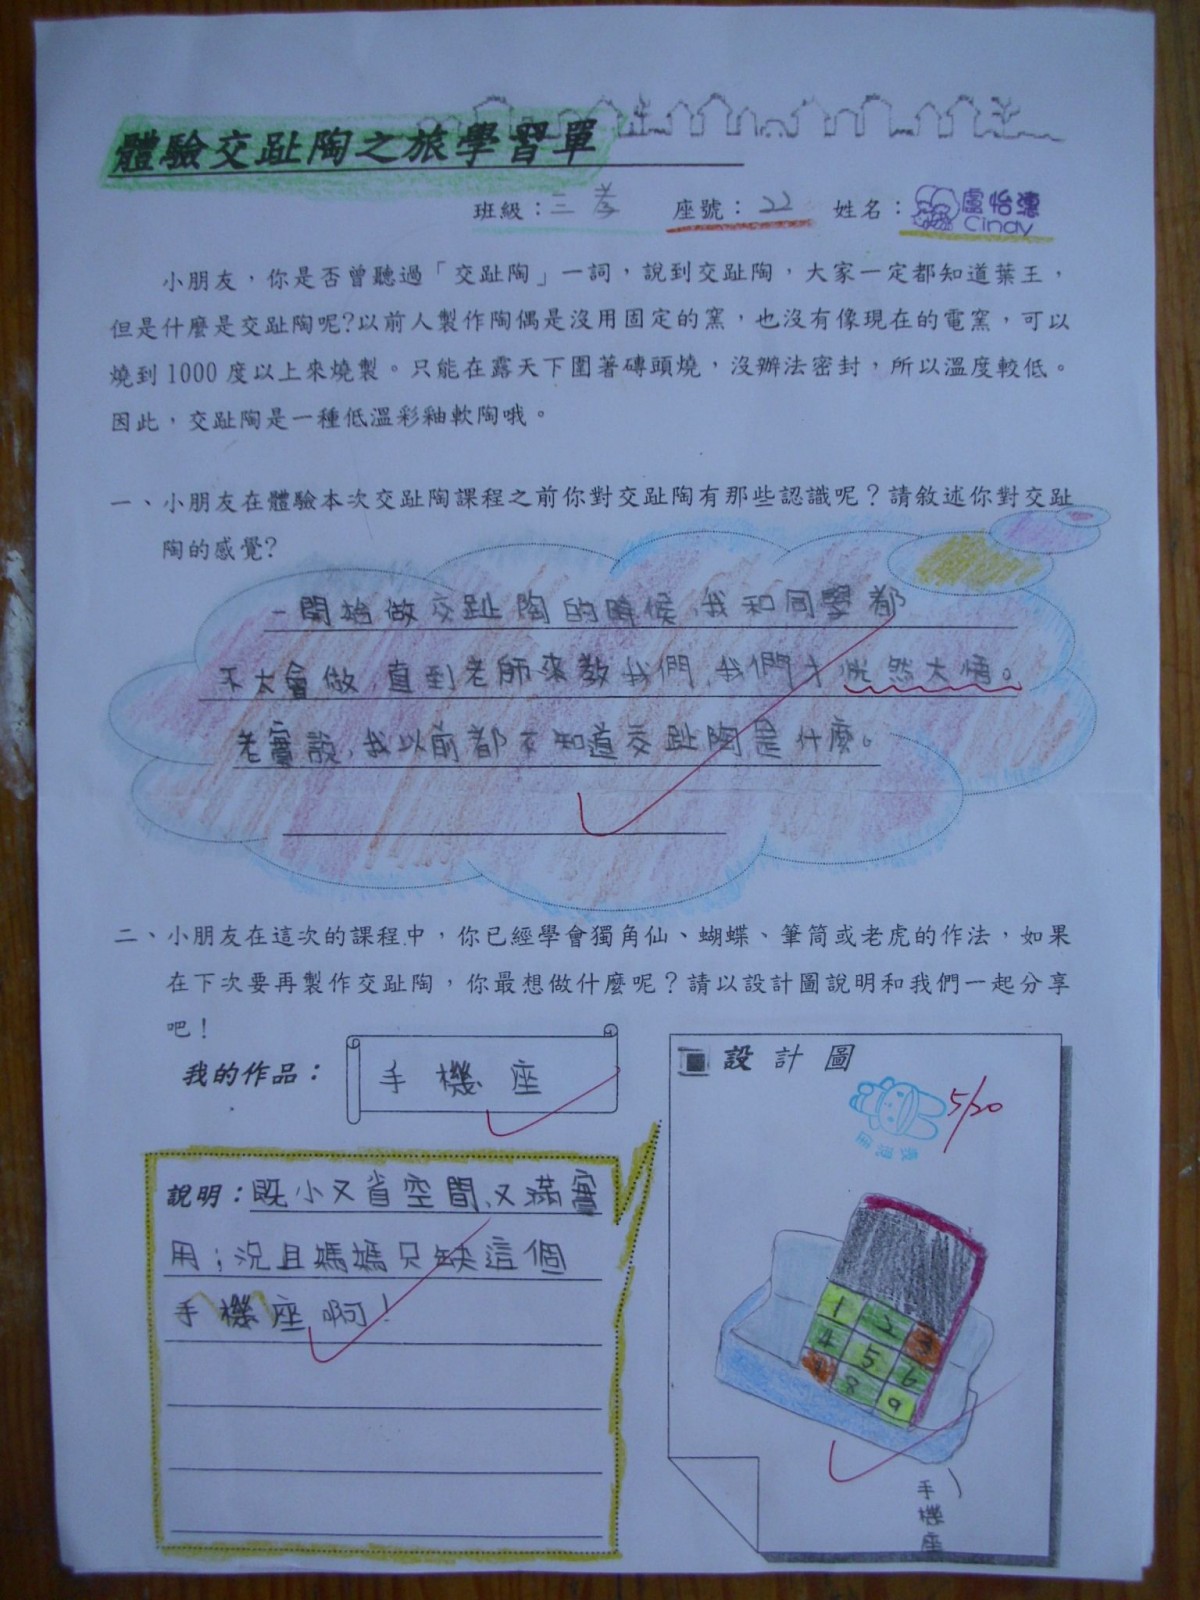 體驗交趾陶之旅學習單
班級：三孝 座號：22 姓名：盧怡潓
Cindy
小朋友，你是否曾聽過「交趾陶」一詞，說到交趾陶，大家一定都知道葉王，
但是什麼是交趾陶呢?以前人製作陶偶是沒用固定的窯，也沒有像現在的電窯，可以
燒到1000度以上來燒製。只能在露天下圍著磚頭燒，沒辦法密封，所以溫度較低。
因此，交趾陶是一種低溫彩釉軟陶哦。
一、小朋友在體驗本次交趾陶課程之前你對交趾陶有那些認識呢？請敘述你對交趾
陶的感覺?
一開始做交趾陶的時候，我和同學都
不太會做 直到老師來教我們，我們才恍然大悟。
老實說，我以前都不知道交趾陶是什麼。
二、小朋友在這次的課程中，你已經學會獨角仙、蝴蝶、筆筒或老虎的作法，如果
在下次要再製作交趾陶，你最想做什麼呢？請以設計圖說明和我們一起分享
吧！
我的作品：手機座
說明：既小又省空間、又滿實
用；況且媽媽只缺這個
手機座啊！
設計圖
5/20
1 2 3
4 5 6
7 8 9
手機座